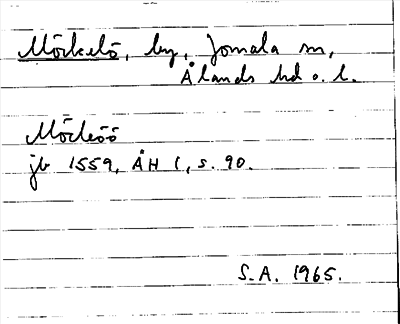 Mörkelö, by, Jomala sn,
Ålands hd o. l.
Mörkeöö
jb 1559, ÅH 1, s. 90.
S.A. 1965.